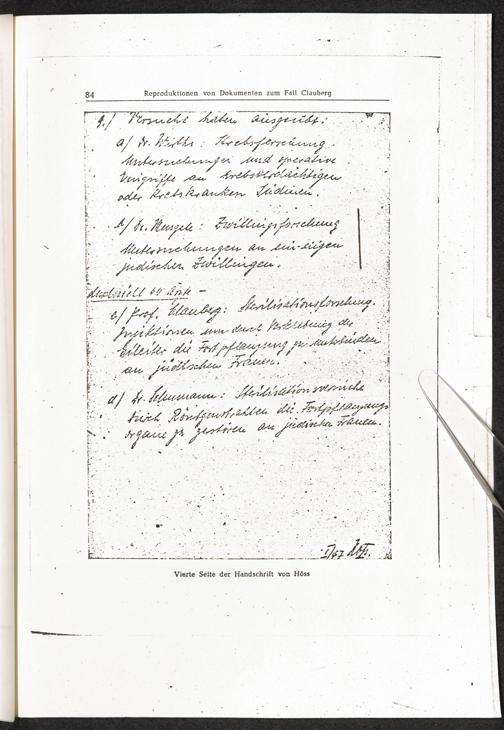 84
Reproduktionen von Dokumenten zum Fall Clauberg
9./ Versuche haben ausgeübt:
a/ Dr. Wirths: Krebsforschung.
Untersuchungen und operative
Eingriffe an krebsverdächtigen
oder krebskranken Jüdinen.
b/ Dr. Mengele: Zwillingsforschung
Untersuchungen an ein-eiigen
jüdischen Zwillingen.
c/ Prof. Clauberg: Sterilisationsforschung.
Injektionen um durch Verklebung der
Eileiter die Fortpflanzung zu unterbinden
an jüdischen Frauen.
d/ Dr. Schumann: Sterilisationsversuche
durch Röntgenstrahlen die Fortpflanzungs
organe zu zerstören an jüdischen Frauen.
I/47 Höß.
Vierte Seite der Handschrift von Höss